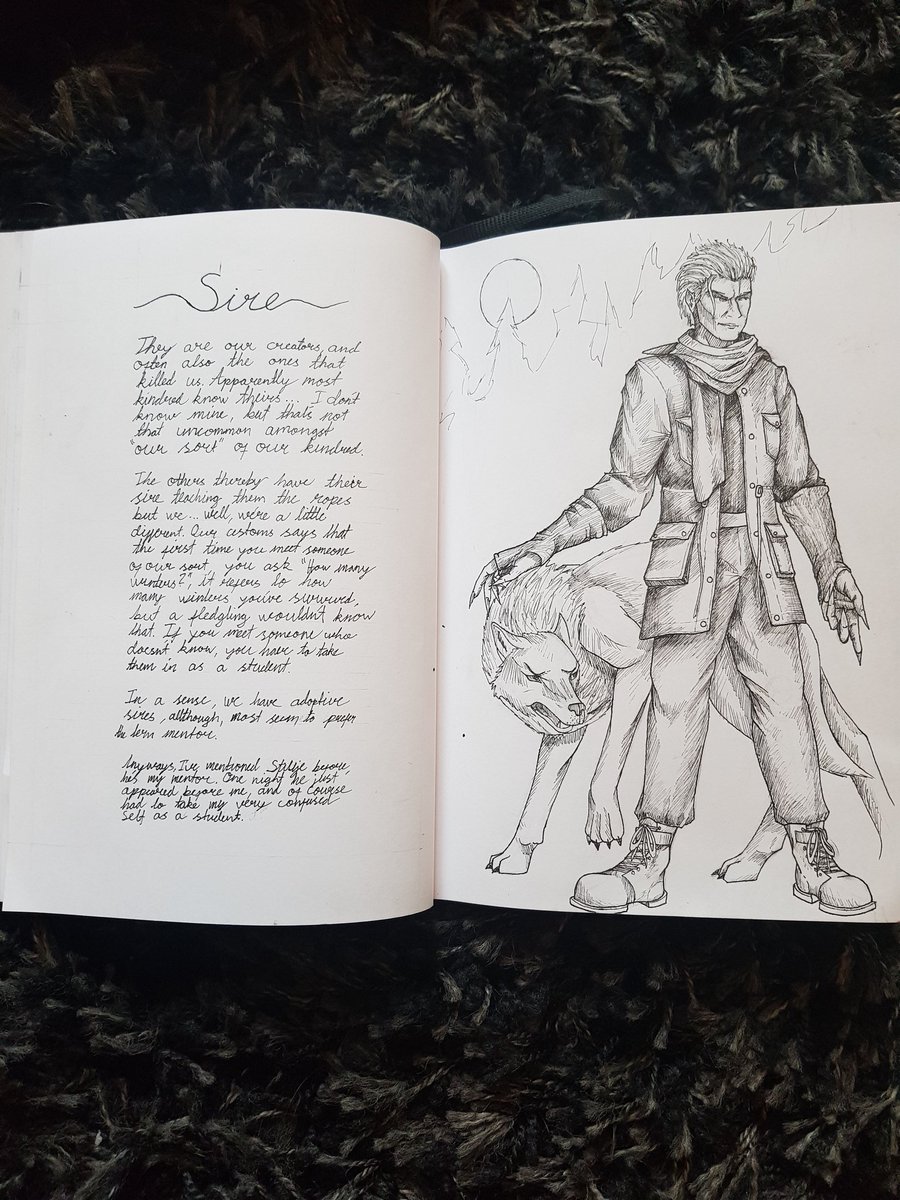 Sire
They are our creators, and
often also the ones that
killed us. Apparently most
kindred know theirs... I dont
know mine, but thats not
that uncommon amongst
"our sort" of our kindred.
The others thereby have their
sire teaching them the ropes
but we... well, we're a little
different. Our customs says that
the first time you meet someone
of our sort, you ask "How many
winters?", it refers to how
many winters you've survived,
but a fledgling wouldn't know
that. If you meet someone who
doesnt know, you have to take
them in as a student.
In a sense, we have adoptive
sires, although, most seem to prefer
the term mentor.
Anyways, I've mentioned before,
hes my mentor. One night he just
appeared before me, and of course
had to take my very confused
self as a student.